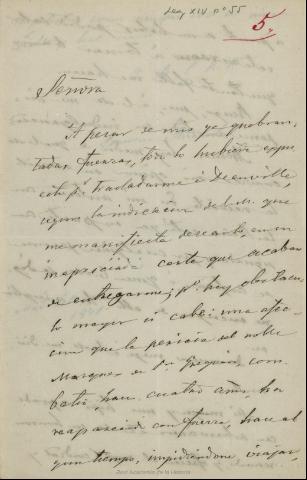 Leg. XIV nº 55
5,
Señora
A pesar de mis ya quebran-
tadas fuerzas, todo lo hubiera
p.ª trasladarme á Deauville,
segun la indicacion de V. M. que
me manifiesta desearlo, en su
carta que acaban
de entregarme; p.º hay obstácu-
lo mayor si cabe: una afec-
cion que la pericia del noble
Marques de S.n Gregorio, com-
batió, hace cuatro años, ha
reaparecido con fuerza, hace al-
gun tiempo, impidiéndome viajar
Real Academia de la Historia